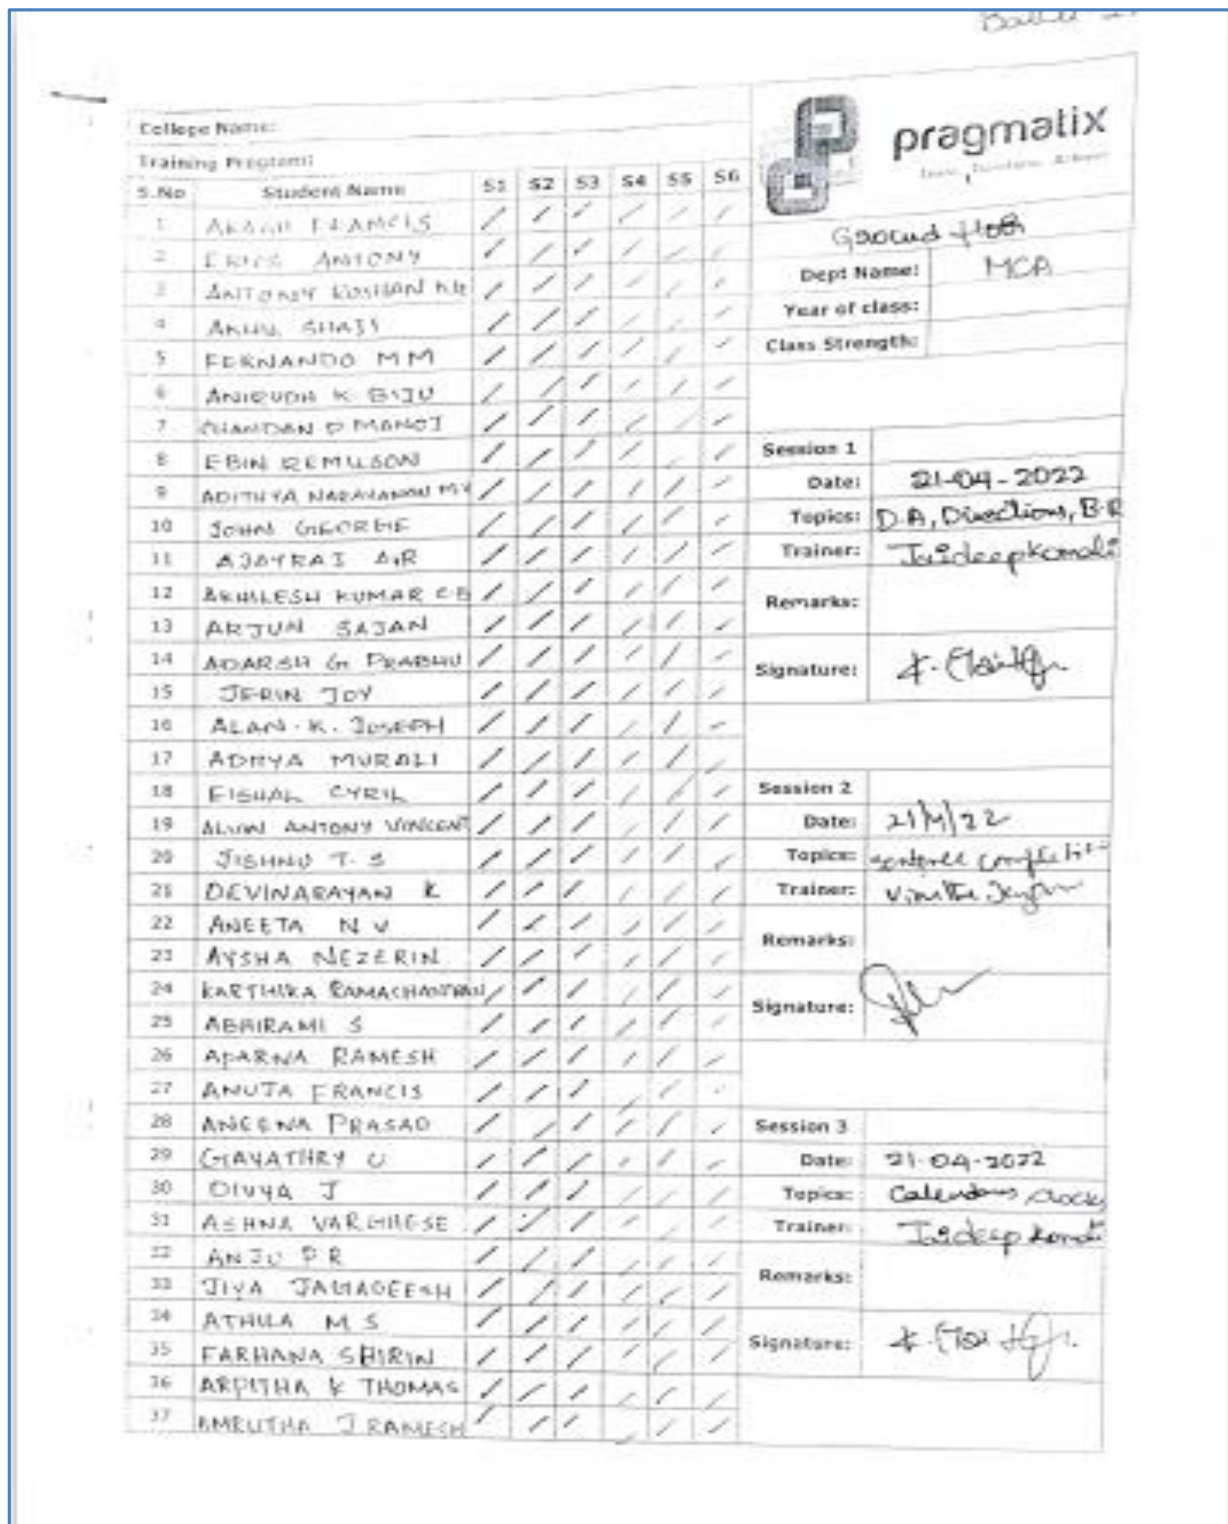 pragmatix
College Name:
Training Program:
S.No Student Name S1 S2 S3 S4 S5 S6
1 AKASH FRANCIS
2 ANTONY
3 ANTONY ROSHAN
4 AKHIL SHAJI
5 FERNANDO M M
6 ANIRUDH K BIJU
7 CHANDAN D MANOJ
8 EBIN REMUSON
9 ADITHYA NARAYANAN M.V
10 JOHN GEORGE
11 AJAYRAJ A.R
12 AKHILESH KUMAR C B
13 ARJUN SAJAN
14 ADARSH G PRABHU
15 JERIN JOY
16 ALAN. K. JOSEPH
17 MURALI
18 CYRIL
19 ANTONY VINCENT
20 JISHNU T. S
21 DEVINARAYAN K
22 ANEETA N V
23 AYSHA NEZERIN
24 KARTHIKA RAMACHANDRAN
25 ABHIRAMI S
26 APARNA RAMESH
27 ANUJA FRANCIS
28 ANEENA PRASAD
29 GAYATHRY U
30 DIVYA J
31 ASHNA VARGHESE
32 ANJU P R
33 JIYA JAGADEESH
34 ATHULA M S
35 FARHANA SHIRIN
36 ARPITHA K THOMAS
37 AMRUTHA J RAMESH
Ground floor
Dept Name: MCA
Year of class:
Class Strength:
Session 1
Date: 21-04-2022
Topics: D.A, Directions, B.R
Trainer: Jaideep
Remarks:
Signature:
Session 2
Date: 21/4/22
Topics: sentence
Trainer:
Remarks:
Signature:
Session 3
Date: 21-04-2022
Topics: Calendars, clocks
Trainer: Jaideep
Remarks:
Signature: